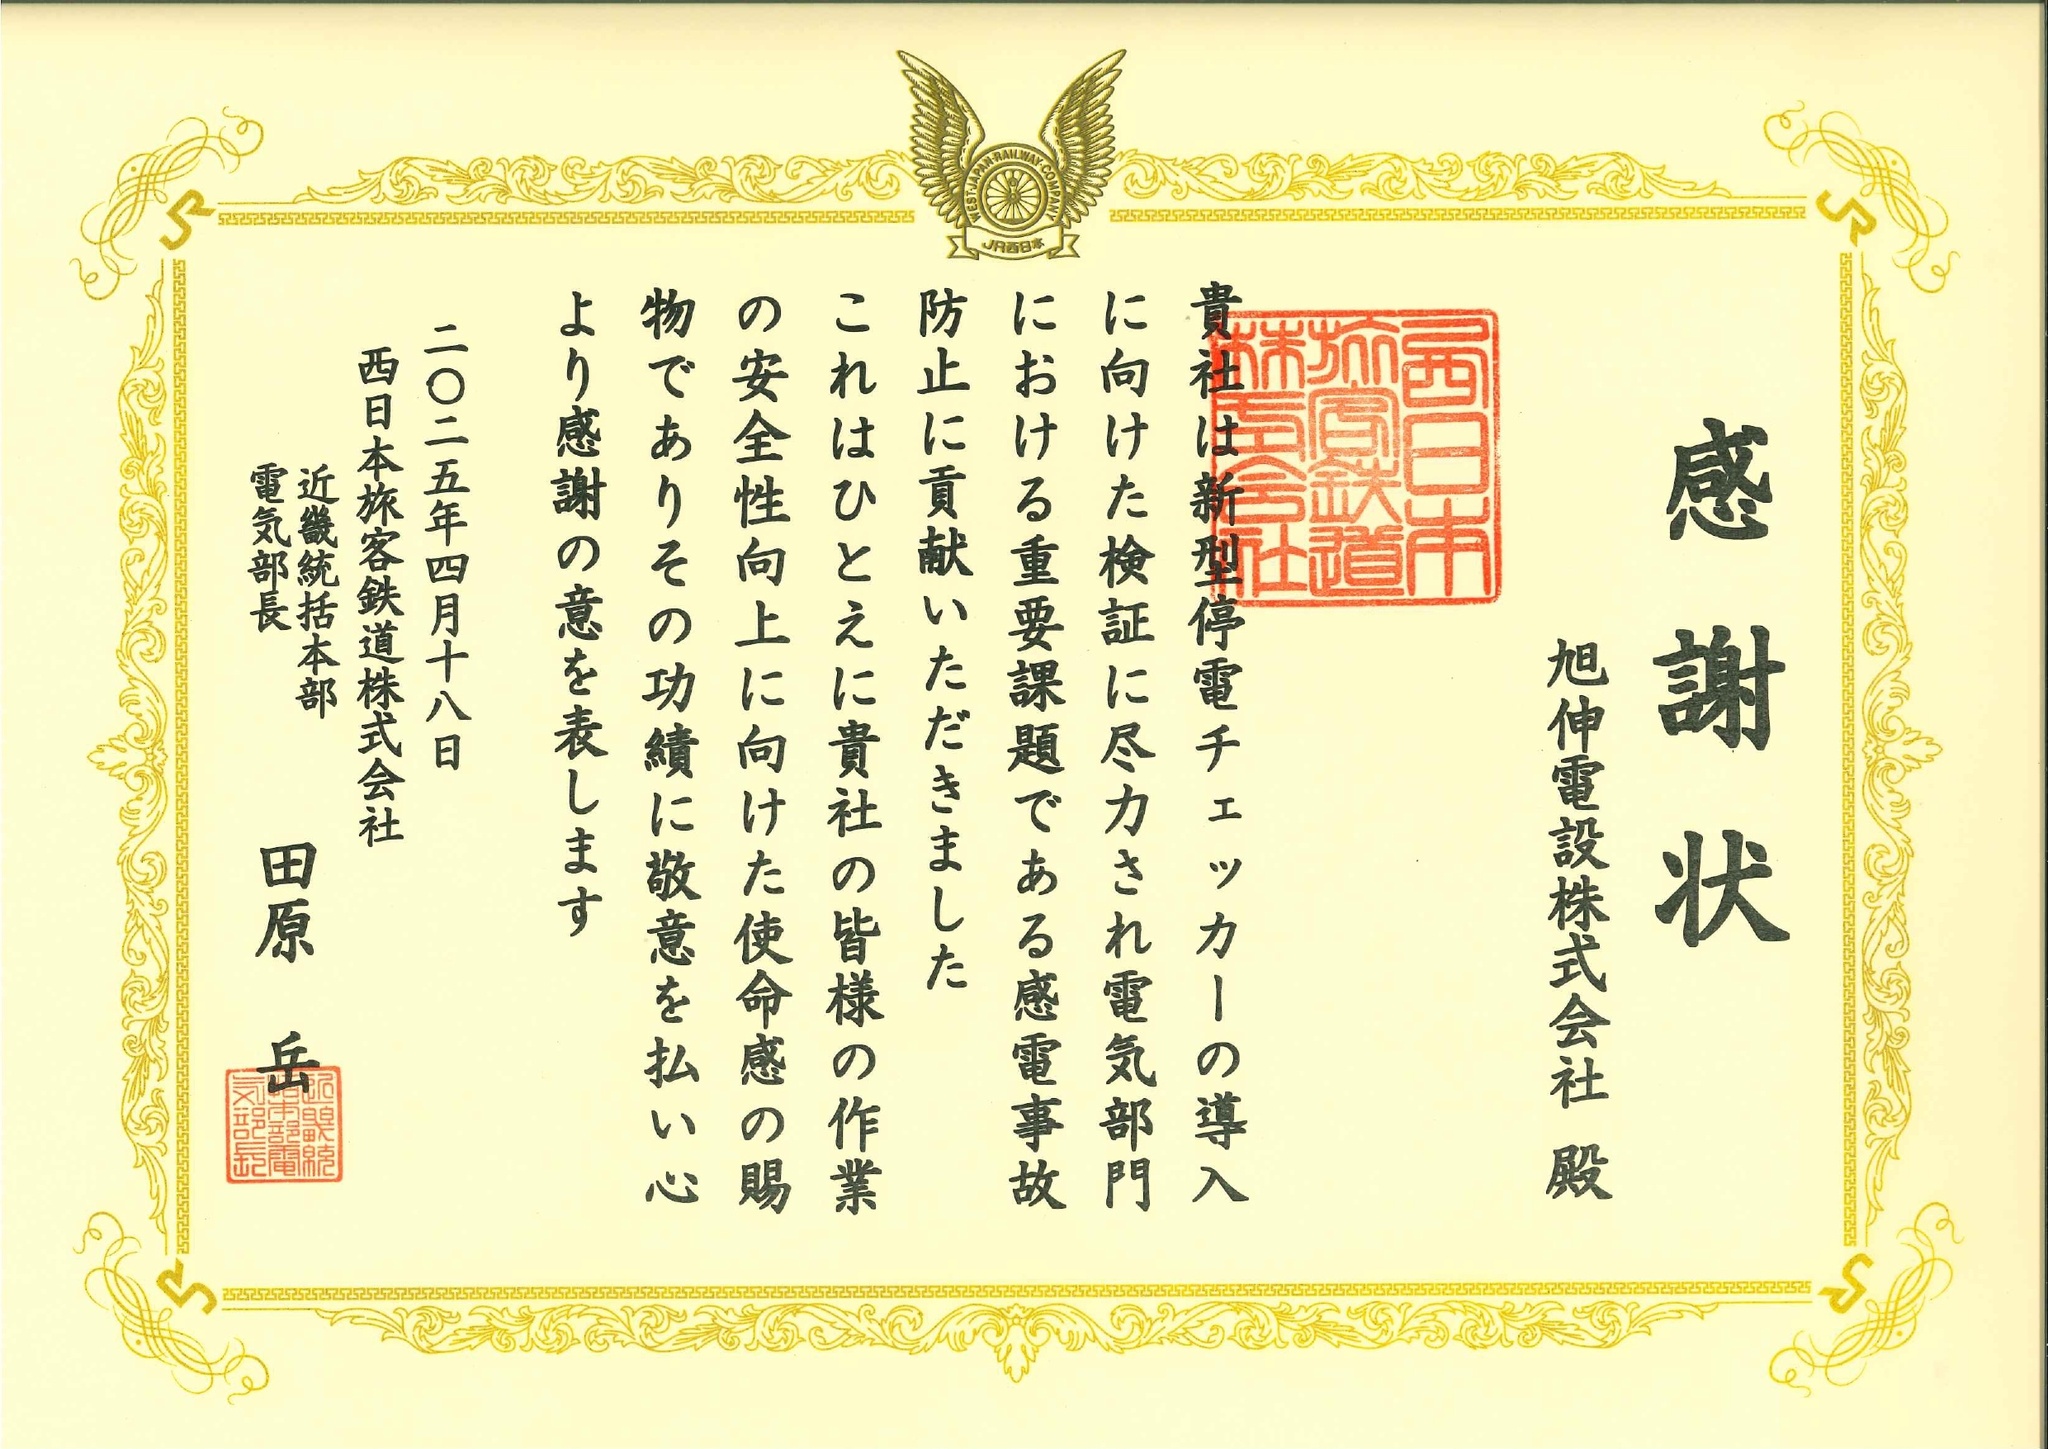 感謝状
旭伸電設株式会社 殿
貴社は新型停電チェッカーの導入
に向けた検証に尽力され電気部門
における重要課題である感電事故
防止に貢献いただきました
これはひとえに貴社の皆様の作業
の安全性向上に向けた使命感の賜
物でありその功績に敬意を払い心
より感謝の意を表します
二〇二五年四月十八日
西日本旅客鉄道株式会社
近畿統括本部
電気部長
田原 岳
WEST・JAPAN・RAILWAY・COMPANY
JR西日本
西日本
旅客鉄道
株式会社
近畿統
括本部電
気部長
JR
JR
JR
JR